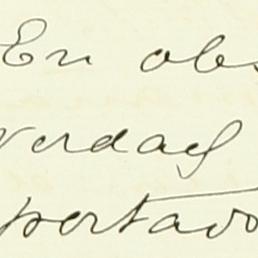 En obs
verdad
portado